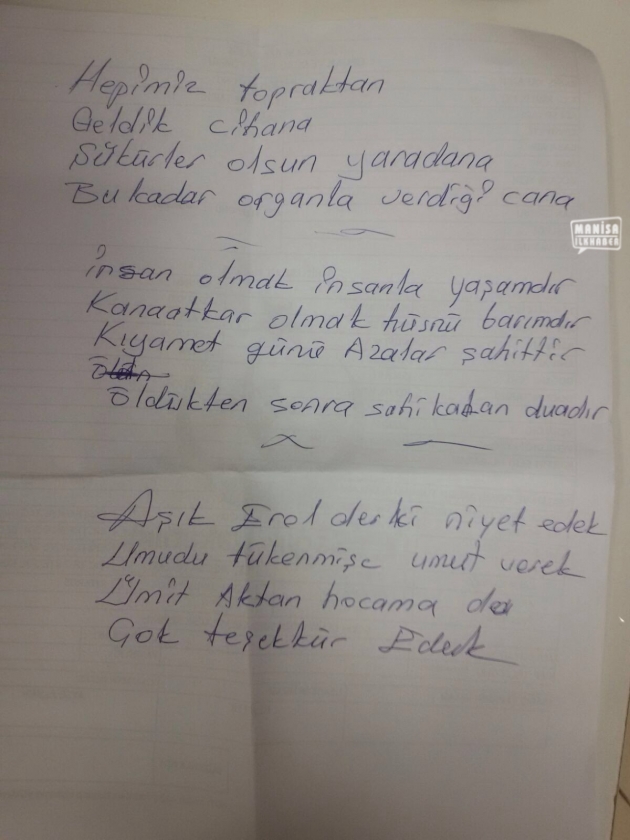 Hepimiz topraktan
Geldik cihana
Şükürler olsun yaradana
Bu kadar organla verdiği cana
MANİSA
İLKHABER
insan olmak insanla yaşamdır
Kanaatkar olmak hüsnü barımdır
Kıyamet günü Azalar şahittir
Öldükten sonra sahi kalan duadır
Aşık Erol derki niyet edek
Umudu tükenmişe umut verek
Ümit Aktan hocama da
Çok teşekkür Edek